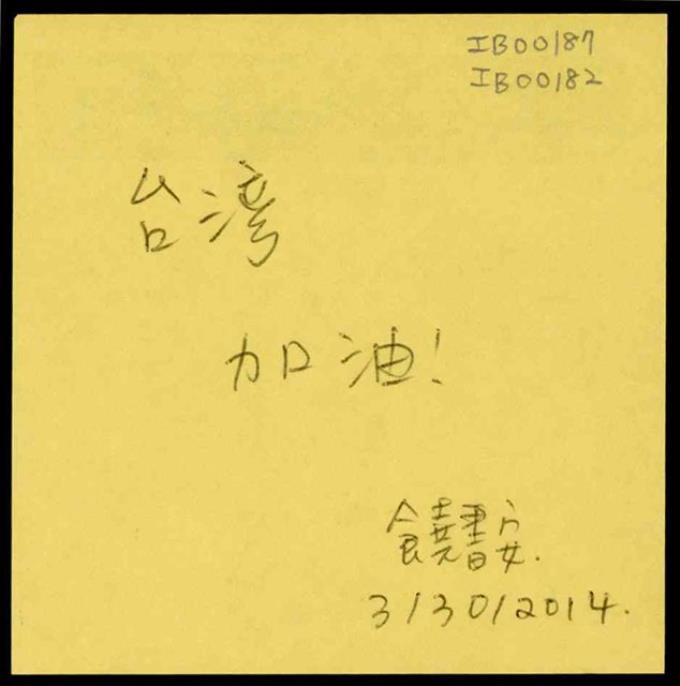 IB00187
IB00182
台湾
加油!
饒書安.
3/30/2014.